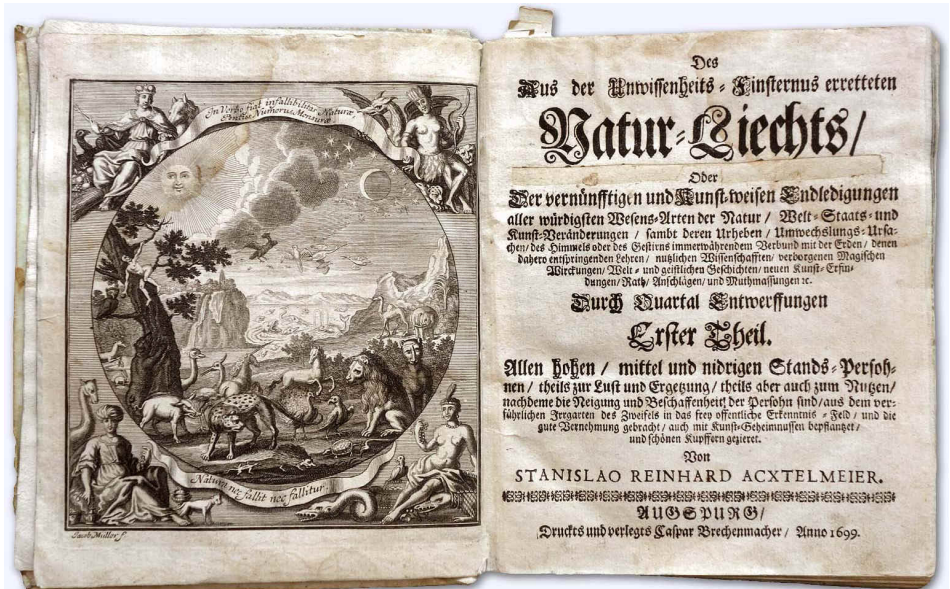 In Verbo fiat infallibilitas Naturæ
Pondus, Numerus, Mensura
Natura nec fallit nec fallitur.
Jacob Müller f.
Des
Aus der Unwissenheits-Finsternus erretteten
Natur-Liechts/
Oder
Der vernünfftigen und Kunst-weisen Endledigungen
aller würdigsten Wesens-Arten der Natur / Welt-Staats- und
Kunst-Veränderungen / sambt deren Urheben / Umwechslungs-Ursa-
chen/ des Himmels oder des Gestirns immerwährendem Verbund mit der Erden/ denen
dahero entspringenden Lehren / nutzlichen Wissenschafften/ verborgenen Magischen
Wirckungen/ Welt- und geistlichen Geschichten/ neuen Kunst-Erfin-
dungen/ Rath/ Anschlägen/ und Muthmassungen ꝛc.
Durch Quartal Entwerffungen
Erster Theil.
Allen hohen / mittel und nidrigen Stands-Persoh-
nen / theils zur Lust und Ergetzung / theils aber auch zum Nutzen/
nachdeme die Neigung und Beschaffenheit der Persohn sind/ aus dem ver-
führlichen Irrgarten des Zweifels in das frey offentliche Erkenntnis-Feld / und die
gute Vernehmung gebracht / auch mit Kunst-Geheimnussen bepflantzet/
und schönen Kupffern gezieret.
Von
STANISLAO REINHARD ACXTELMEIER.
AUGSPURG/
Druckts und verlegts Caspar Brechenmacher / Anno 1699.